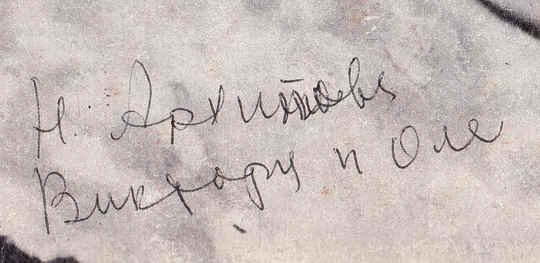 Н. Архипова
Виктору и Оле